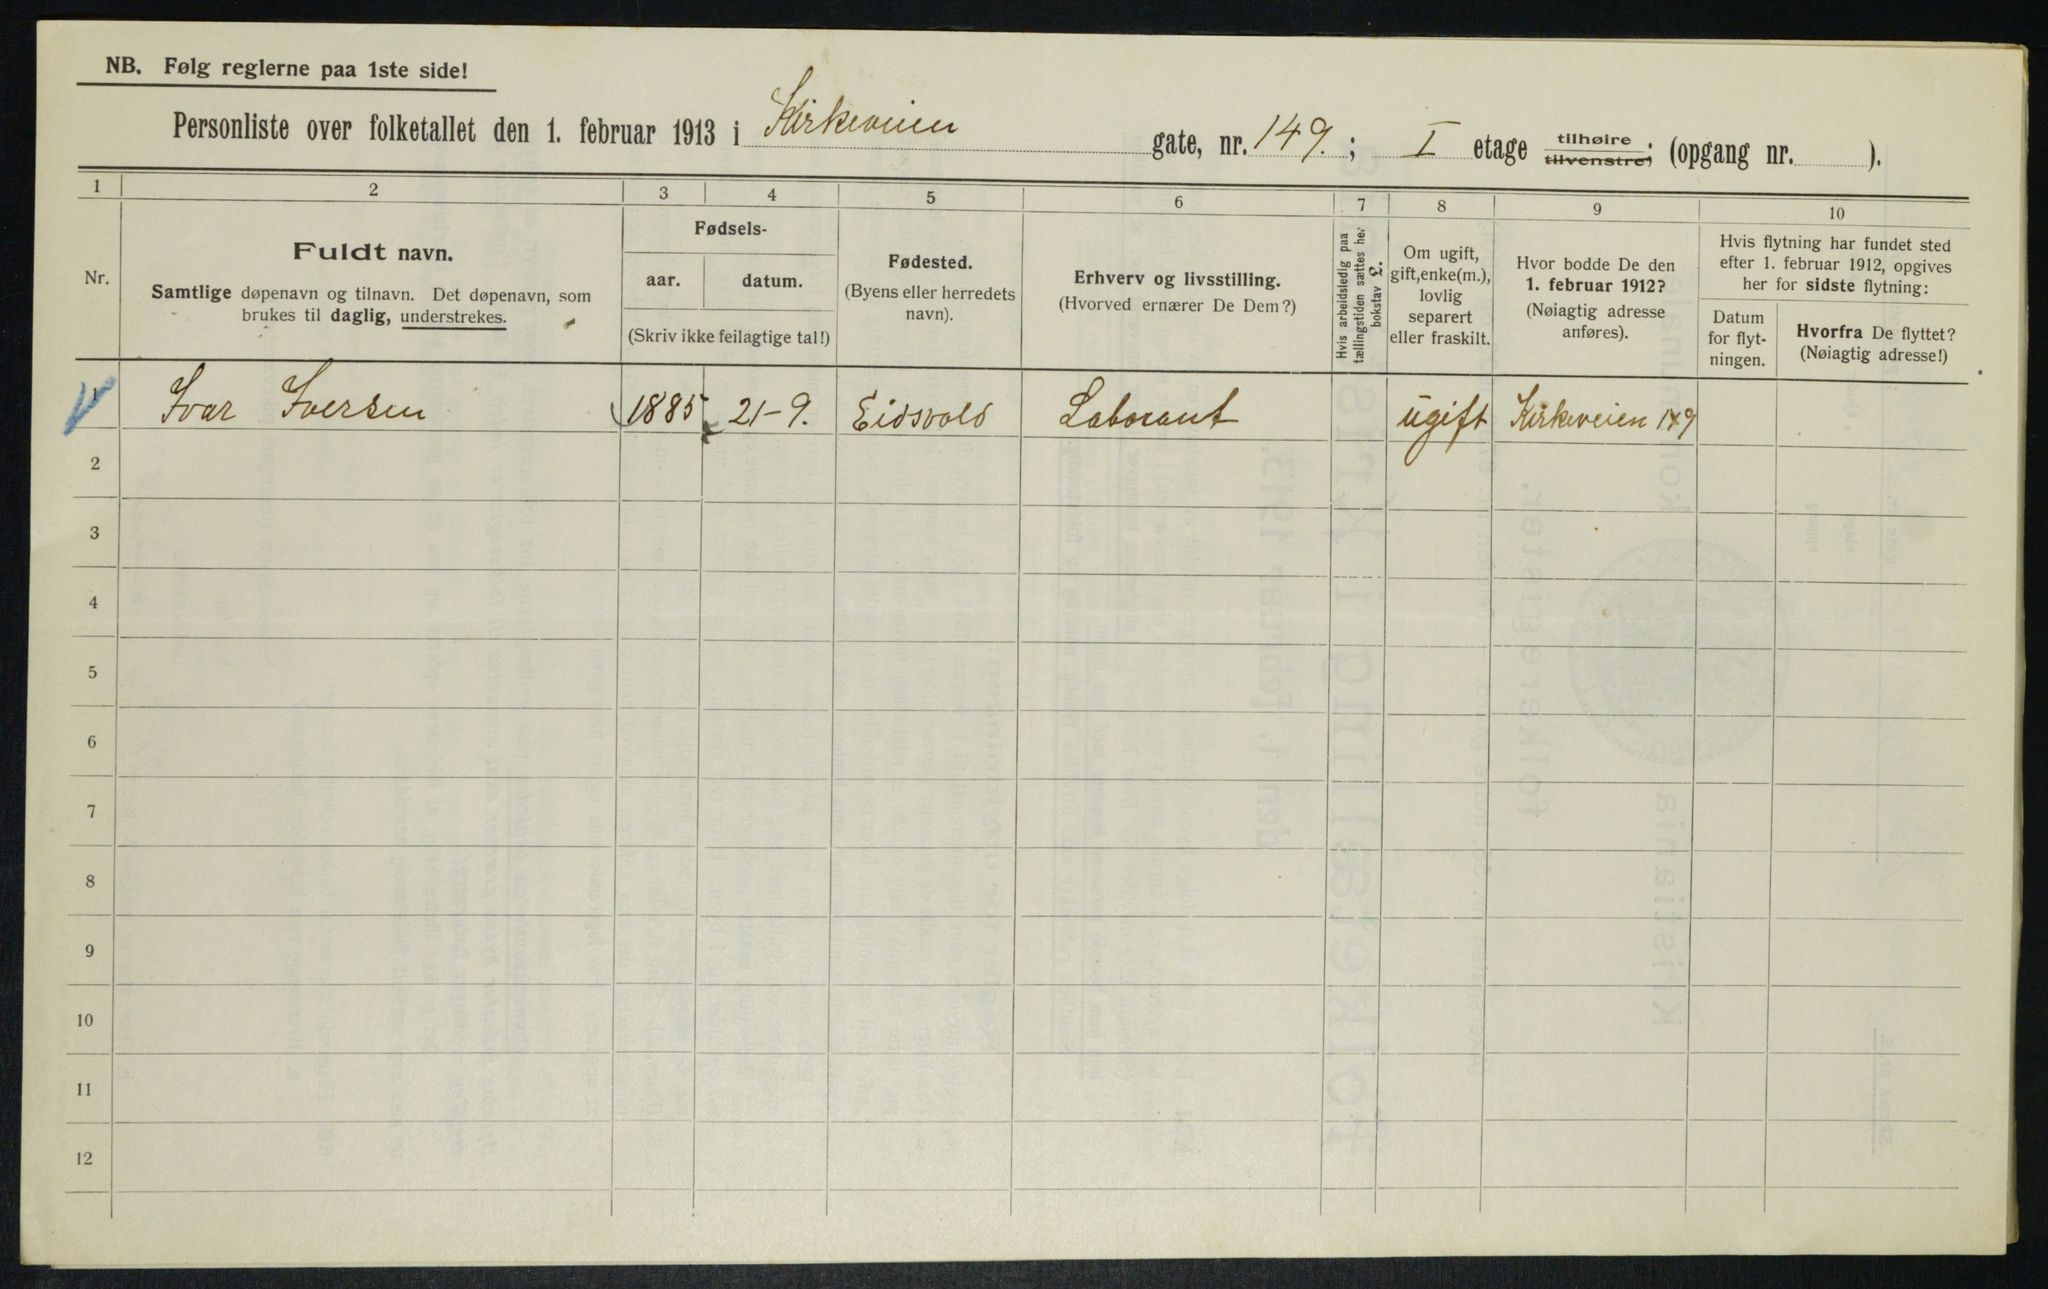 NB. Følg reglerne paa 1ste side!
Personliste over folketallet den 1. februar 1913 i Kirkeveien gate, nr. 149. ; I etage tilhøire. tilvenstre; (opgang nr. ).
1 2 3 4 5 6 7 8 9 10
Nr.
Fuldt navn.
Samtlige døpenavn og tilnavn. Det døpenavn, som
brukes til daglig, understrekes.
Fødsels-
aar. datum.
(Skriv ikke feilagtige tal!)
Fødested.
(Byens eller herredets
navn).
Erhverv og livsstilling.
(Hvorved ernærer De Dem?)
Hvis arbeidsledig paa
tællingstiden sættes her
bokstav L.
Om ugift,
gift, enke(m.),
lovlig
separert
eller fraskilt.
Hvor bodde De den
1. februar 1912?
(Nøiagtig adresse
anføres).
Hvis flytning har fundet sted
efter 1. februar 1912, opgives
her for sidste flytning:
Datum
for flyt-
ningen.
Hvorfra De flyttet?
(Nøiagtig adresse!)
1 Ivar Iversen 1885 21-9. Eidsvold Laborant ugift Kirkeveien 149
2
3
4
5
6
7
8
9
10
11
12